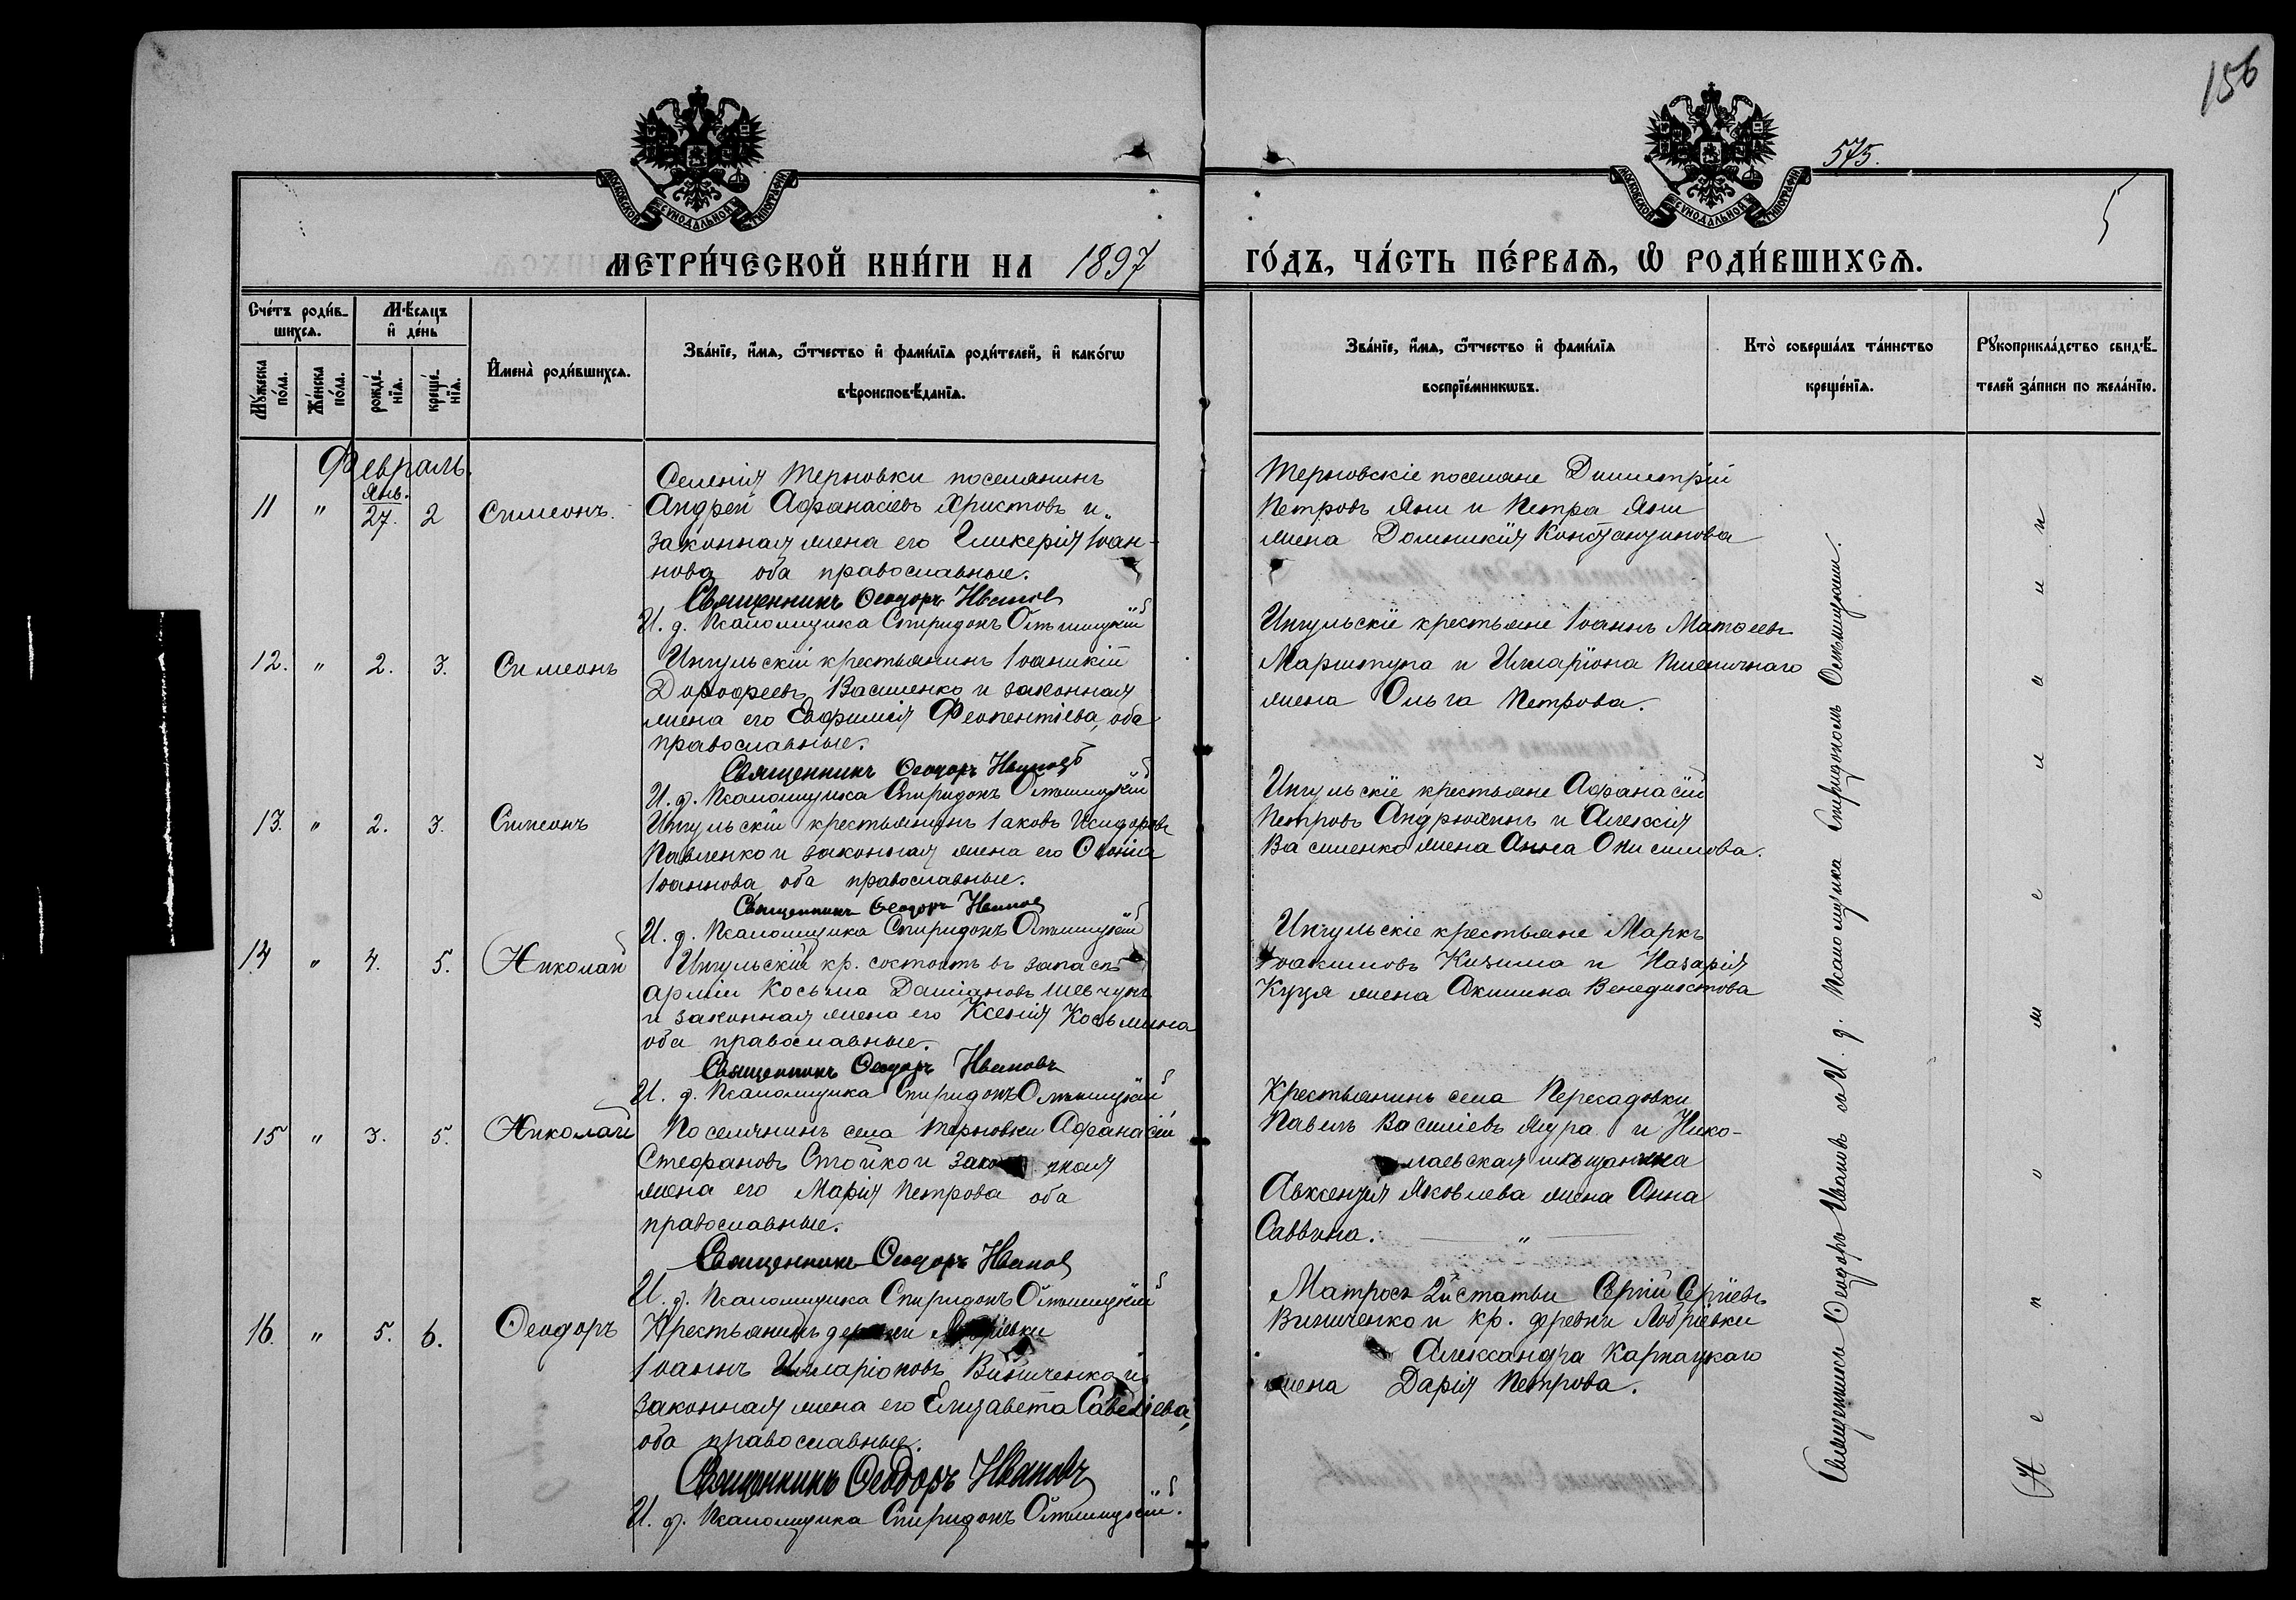 156
575.
5
МОСКОВСКОЙ СУНОДАЛЬНОЙ ТИПОГРАФІИ
МОСКОВСКОЙ СУНОДАЛЬНОЙ ТИПОГРАФІИ
МЕТРИ́ЧЕСКОЙ КНИ́ГИ НА 1897
ГО́ДЪ, ЧА́СТЬ ПЕ́РВАѦ, Ѡ РОДИ́ВШИХСѦ.
Сче́тъ роди́в-
шихсѧ.
Мꙋ́жеска по́ла.
Же́нска по́ла.
Мѣ́сѧцъ
и҆ де́нь
рожде́-
нїѧ.
креще́-
нїѧ.
И҆мена̀ роди́вшихсѧ.
Зва́нїе, и҆́мѧ, ѻ҆́тчество и҆ фами́лїѧ роди́телей, и҆ како́гѡ
вѣроисповѣ́данїѧ.
Зва́нїе, и҆́мѧ, ѻ҆́тчество и҆ фами́лїѧ
воспрїе́мникѡвъ.
Кто̀ соверша́лъ та́инство
креще́нїѧ.
Рꙋкоприкла́дство свидѣ́-
телей за́писи по жела́нїю.
Февраль.
11 " Янв. 27. 2 Симеонъ.
Селенія Терновки поселянинъ
Андрей Афанасіевъ Христовъ и
законная жена его Гликерія Іоан-
нова оба православные.
Священникъ Ѳеодоръ Ивановъ
И. д. Псаломщика Спиридонъ
Терновскіе поселяне Димитрій
Петровъ Яни и Петра Яни
жена Домникія Константинова
12. " 2. 3. Симеонъ
Ингульскій крестьянинъ Іоаникій
Дорофеевъ Василенко и законная
жена его Евфимія оба
православные.
Священникъ Ѳеодоръ Ивановъ
И. д. Псаломщика Спиридонъ
Ингульскіе крестьяне Іоаннъ Матѳеевъ
и Иларіона Пшеничнаго
жена Ольга Петрова.
13. " 2. 3. Симеонъ
Ингульскій крестьянинъ Іаковъ Исидоровъ
Павленко и законная жена его
Іоаннова оба православные.
Священникъ Ѳеодоръ Ивановъ
И. д. Псаломщика Спиридонъ
Ингульскіе крестьяне Афанасій
Петровъ Андрюхинъ и Алексія
Василенко жена Анна Онисимова.
14 " 4. 5. Николай
Ингульскій кр. состоитъ въ запасѣ
арміи Косьма Даміановъ Шевчукъ
и законная жена его Ксенія Косьмина
оба православные.
Священникъ Ѳеодоръ Ивановъ
И. д. Псаломщика Спиридонъ
Ингульскіе крестьяне Маркъ
Іоакимовъ Кизима и Назарія
Куця жена Акилина Венедиктова
15 " 3. 5. Николай
Поселянинъ села Терновки Афанасій
Стефановъ Стойко и законная
жена его Марія Петрова оба
православные.
Священникъ Ѳеодоръ Ивановъ
И. д. Псаломщика Спиридонъ
Крестьянинъ села Пересадовки
Павелъ Василіевъ и Нико-
лаевская мѣщанина
Авксентія Яковлева жена Анна
Саввина. — " —
16. " 5. 6. Ѳеодоръ
Крестьянинъ деревни
Іоаннъ Илларіоновъ Виниченко и
законная жена его Елизавета Савеліева,
оба православные.
Священникъ Ѳеодоръ Ивановъ
И. д. Псаломщика Спиридонъ
Матросъ 2й статьи Сергій Сергіевъ
Виниченко и кр. деревни
Александра Карпацкаго
жена Дарія Петрова.
Священникъ Ѳеодоръ Ивановъ съ И. д. Псаломщика Спиридономъ
Не